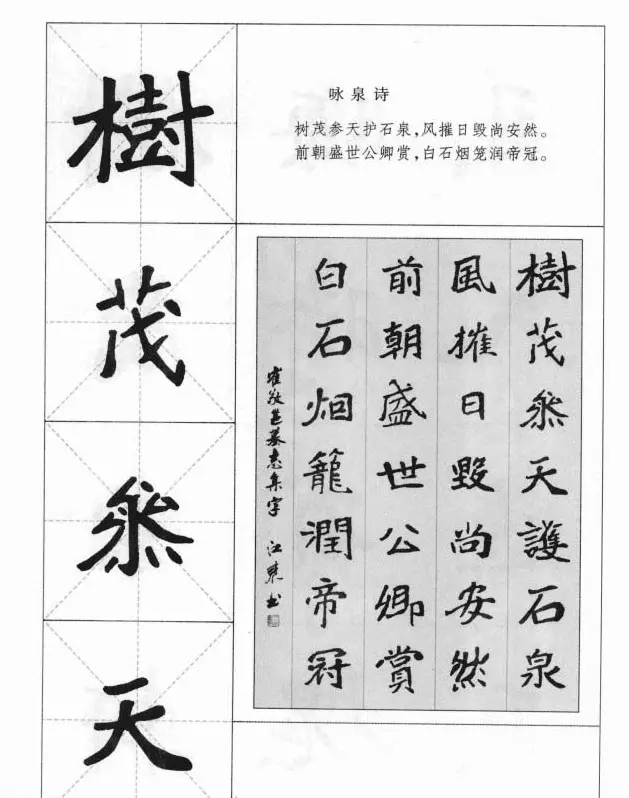 樹
茂
叅
天
咏泉诗
树茂参天护石泉,风摧日毁尚安然。
前朝盛世公卿赏,白石烟笼润帝冠。
樹茂叅天護石泉
風摧日毀尚安然
前朝盛世公卿賞
白石烟籠潤帝冠
崔敬邕墓志集字 江東书